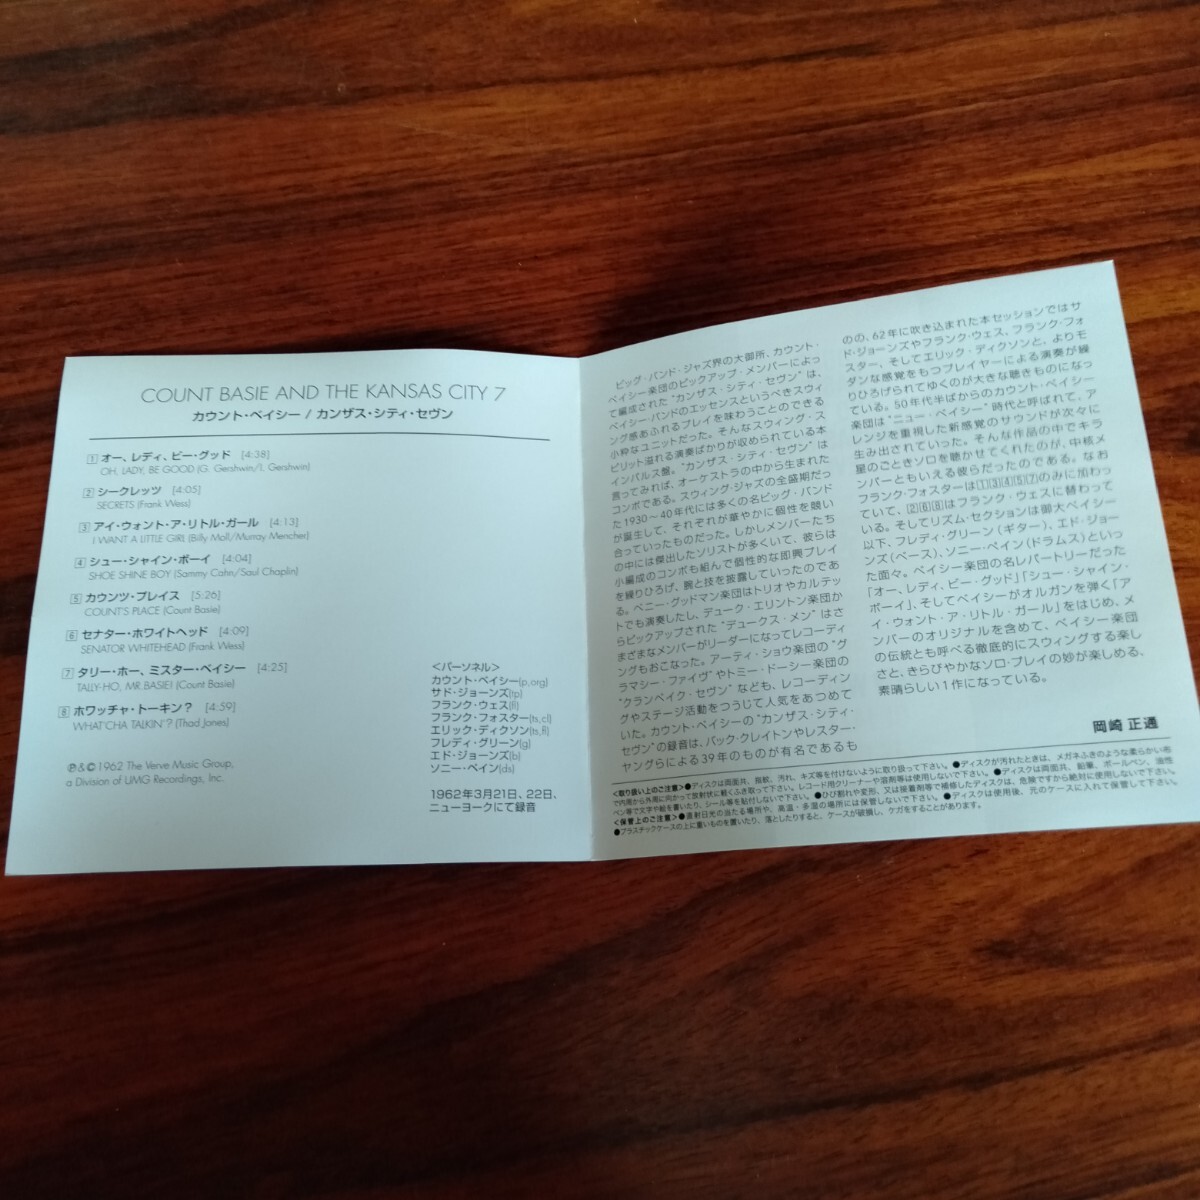 COUNT BASIE AND THE KANSAS CITY 7
カウント・ベイシー / カンザス・シティ・セヴン
1 オー、レディ、ビー・グッド [4:38]
OH, LADY, BE GOOD (G. Gershwin/I. Gershwin)
2 シークレッツ [4:05]
SECRETS (Frank Wess)
3 アイ・ウォント・ア・リトル・ガール [4:13]
I WANT A LITTLE GIRL (Billy Moll/Murray Mencher)
4 シュー・シャイン・ボーイ [4:04]
SHOE SHINE BOY (Sammy Cahn/Saul Chaplin)
5 カウンツ・プレイス [5:26]
COUNT'S PLACE (Count Basie)
6 セナター・ホワイトヘッド [4:09]
SENATOR WHITEHEAD (Frank Wess)
7 タリー・ホー、ミスター・ベイシー [4:25]
TALLY-HO, MR. BASIE! (Count Basie)
8 ホワッチャ・トーキン? [4:59]
WHAT'CHA TALKIN'? (Thad Jones)
℗&©1962 The Verve Music Group,
a Division of UMG Recordings, Inc.
<パーソネル>
カウント・ベイシー(p,org)
サド・ジョーンズ(tp)
フランク・ウェス(fl)
フランク・フォスター(ts,cl)
エリック・ディクソン(ts,fl)
フレディ・グリーン(g)
エド・ジョーンズ(b)
ソニー・ペイン(ds)
1962年3月21日、22日、
ニューヨークにて録音
ビッグ・バンド・ジャズ界の大御所、カウント・
ベイシー楽団のピックアップ・メンバーによっ
て編成された“カンザス・シティ・セヴン”は、
ベイシー・バンドのエッセンスというべきスウィ
ング感あふれるプレイを味わうことのできる
小粋なユニットだった。そんなスウィング・ス
ピリット溢れる演奏ばかりが収められている本
インパルス盤。“カンザス・シティ・セヴン”は
言ってみれば、オーケストラの中から生まれた
コンボである。スウィング・ジャズの全盛期だっ
た1930〜40年代には多くの名ビッグ・バンド
が誕生して、それぞれが華やかに個性を競い
合っていったものだった。しかしメンバーたち
の中には傑出したソリストが多くいて、彼らは
小編成のコンボも組んで個性的な即興プレイ
を繰りひろげ、腕と技を披露していったのであ
る。ベニー・グッドマン楽団はトリオやカルテッ
トでも演奏したし、デューク・エリントン楽団か
らピックアップされた“デュークス・メン”はさ
まざまなメンバーがリーダーになってレコーディ
ングもおこなった。アーティ・ショウ楽団の“グ
ラマシー・ファイヴ”やトミー・ドーシー楽団の
“クランベイク・セヴン”なども、レコーディン
グやステージ活動をつうじて人気をあつめて
いた。カウント・ベイシーの“カンザス・シティ・
セヴン”の録音は、バック・クレイトンやレスター・
ヤングらによる39年のものが有名であるも
のの、62年に吹き込まれた本セッションではサ
ド・ジョーンズやフランク・ウェス、フランク・フォ
スター、そしてエリック・ディクソンと、よりモ
ダンな感覚をもつプレイヤーによる演奏が繰
りひろげられてゆくのが大きな聴きものになっ
ている。50年代半ばからのカウント・ベイシー
楽団は“ニュー・ベイシー”時代と呼ばれて、ア
レンジを重視した新感覚のサウンドが次々に
生み出されていった。そんな作品の中でキラ
星のごときソロを聴かせてくれたのが、中核メ
ンバーともいえる彼らだったのである。なお
フランク・フォスターは1 3 4 5 7のみに加わっ
ていて、2 6 8はフランク・ウェスに替わって
いる。そしてリズム・セクションは御大ベイシー
以下、フレディ・グリーン(ギター)、エド・ジョー
ンズ(ベース)、ソニー・ペイン(ドラムス)といっ
た面々。ベイシー楽団の名レパートリーだった
「オー、レディ、ビー・グッド」「シュー・シャイン・
ボーイ」、そしてベイシーがオルガンを弾く「ア
イ・ウォント・ア・リトル・ガール」をはじめ、メ
ンバーのオリジナルを含めて、ベイシー楽団
の伝統とも呼べる徹底的にスウィングする楽し
さと、きらびやかなソロ・プレイの妙が楽しめる、
素晴らしい1作になっている。
岡崎 正通
<取り扱い上のご注意>●ディスクは両面共、指紋、汚れ、キズ等を付けないように取り扱って下さい。●ディスクが汚れたときは、メガネふきのような柔らかい布
で内周から外周に向かって放射状に軽くふき取って下さい。レコード用クリーナーや溶剤等は使用しないで下さい。●ディスクは両面共、鉛筆、ボールペン、油性
ペン等で文字や絵を書いたり、シール等を貼付しないで下さい。●ひび割れや変形、又は接着剤等で補修したディスクは、危険ですから絶対に使用しないで下さい。
<保管上のご注意>●直射日光の当たる場所や、高温・多湿の場所には保管しないで下さい。●ディスクは使用後、元のケースに入れて保管して下さい。
●プラスチックケースの上に重いものを置いたり、落としたりすると、ケースが破損し、ケガをすることがあります。